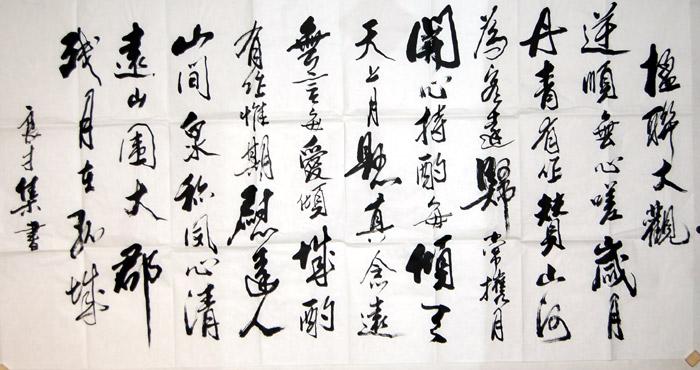 楹聯大觀
逆順無心嗟歲月
丹青有作贊山河
為客遠歸常攜月
開心持酌每傾天
天上月懸真念遠
無言每愛傾城酌
有作惟期慰遠人
山間泉称夙心清
遠山圍大郡
残月在孤城
良才集書